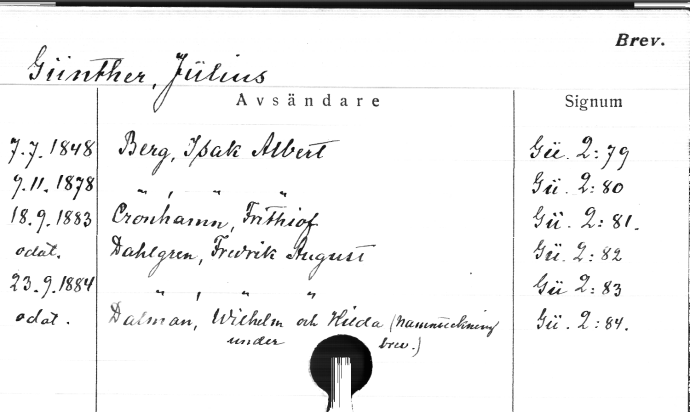 Brev.
Günther, Jülius
Avsändare Signum
7.7. 1848 Berg, Isak Albert Gü. 2:79
9.11. 1878 " , " " Gü. 2:80
18.9. 1883 Cronhamn, Frithiof Gü. 2:81.
odat. Dahlgren, Fredrik August Gü. 2:82
23.9.1884 " , " " Gü 2:83
odat. Dalman, Wilhelm och Hilda (namnteckning Gü. 2:84.
under brev.)